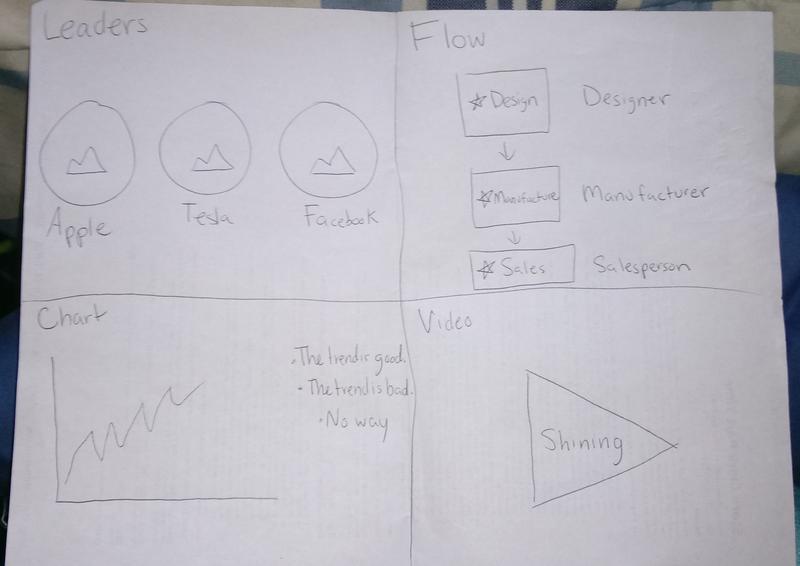 Leaders
Apple
Tesla
Facebook
Flow
Design
Designer
Manufacture
Manufacturer
Sales
Salesperson
Chart
• The trend is good.
• The trend is bad.
• No way
Video
Shining